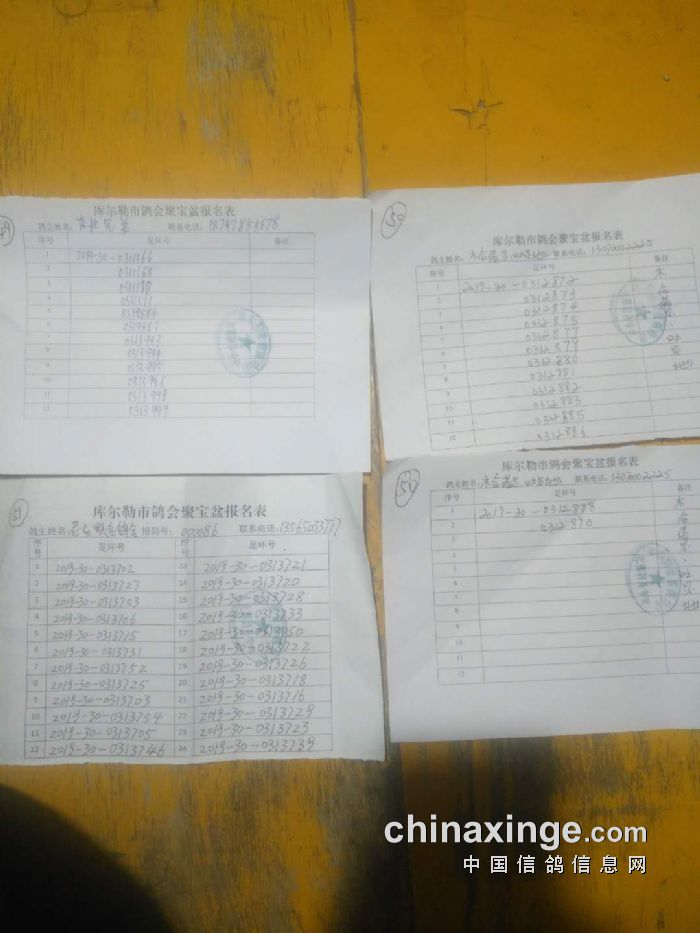 库尔勒市鸽会聚宝盆报名表
鸽主姓名: 联系电话:
序号 足环号 备注
1 2019-30-0311166
2 0311168
3
4 0311171
5
6 0319887
7 0313993
8 0313994
9 0313995
10 0313996
11 0313998
12 0313999
50
库尔勒市鸽会聚宝盆报名表
鸽主姓名: 联系电话: 13070022225
序号 足环号 备注
1 2019-30-0312872 木
2 0312873 合
3 0312874
4 0312875
5 0312877
6 0312879
7 0312880
8 0312881
9 0312882
10 0312883
11 0312885
12 0312886
51
库尔勒市鸽会聚宝盆报名表
鸽主姓名: 报到号: 000086 联系电话: 13565033777
序号 足环号 序号 足环号
1 2019-30-0313702 13 2019-30-0313721
2 2019-30-0313727 14 2019-30-0313720
3 2019-30-0313753 15 2019-30-0313728
4 2019-30-0313706 16 2019-30-0313733
5 2019-30-0313715 17
6 2019-30-0313731 18 2019-30-0313722
7 2019-30-0313752 19 2019-30-0313726
8 2019-30-0313725 20 2019-30-0313718
9 2019-30-0313703 21 2019-30-0313716
10 2019-30-0313754 22 2019-30-0313729
11 2019-30-0313705 23 2019-30-0313723
12 2019-30-0313746 24 2019-30-0313739
50
库尔勒市鸽会聚宝盆报名表
鸽主姓名: 联系电话: 13070022225
序号 足环号 备注
1 2019-30-0312888 木
2 0312890 合
3
4
5
6
7
8
9
10
11
12
chinaxinge.com
中国信鸽信息网